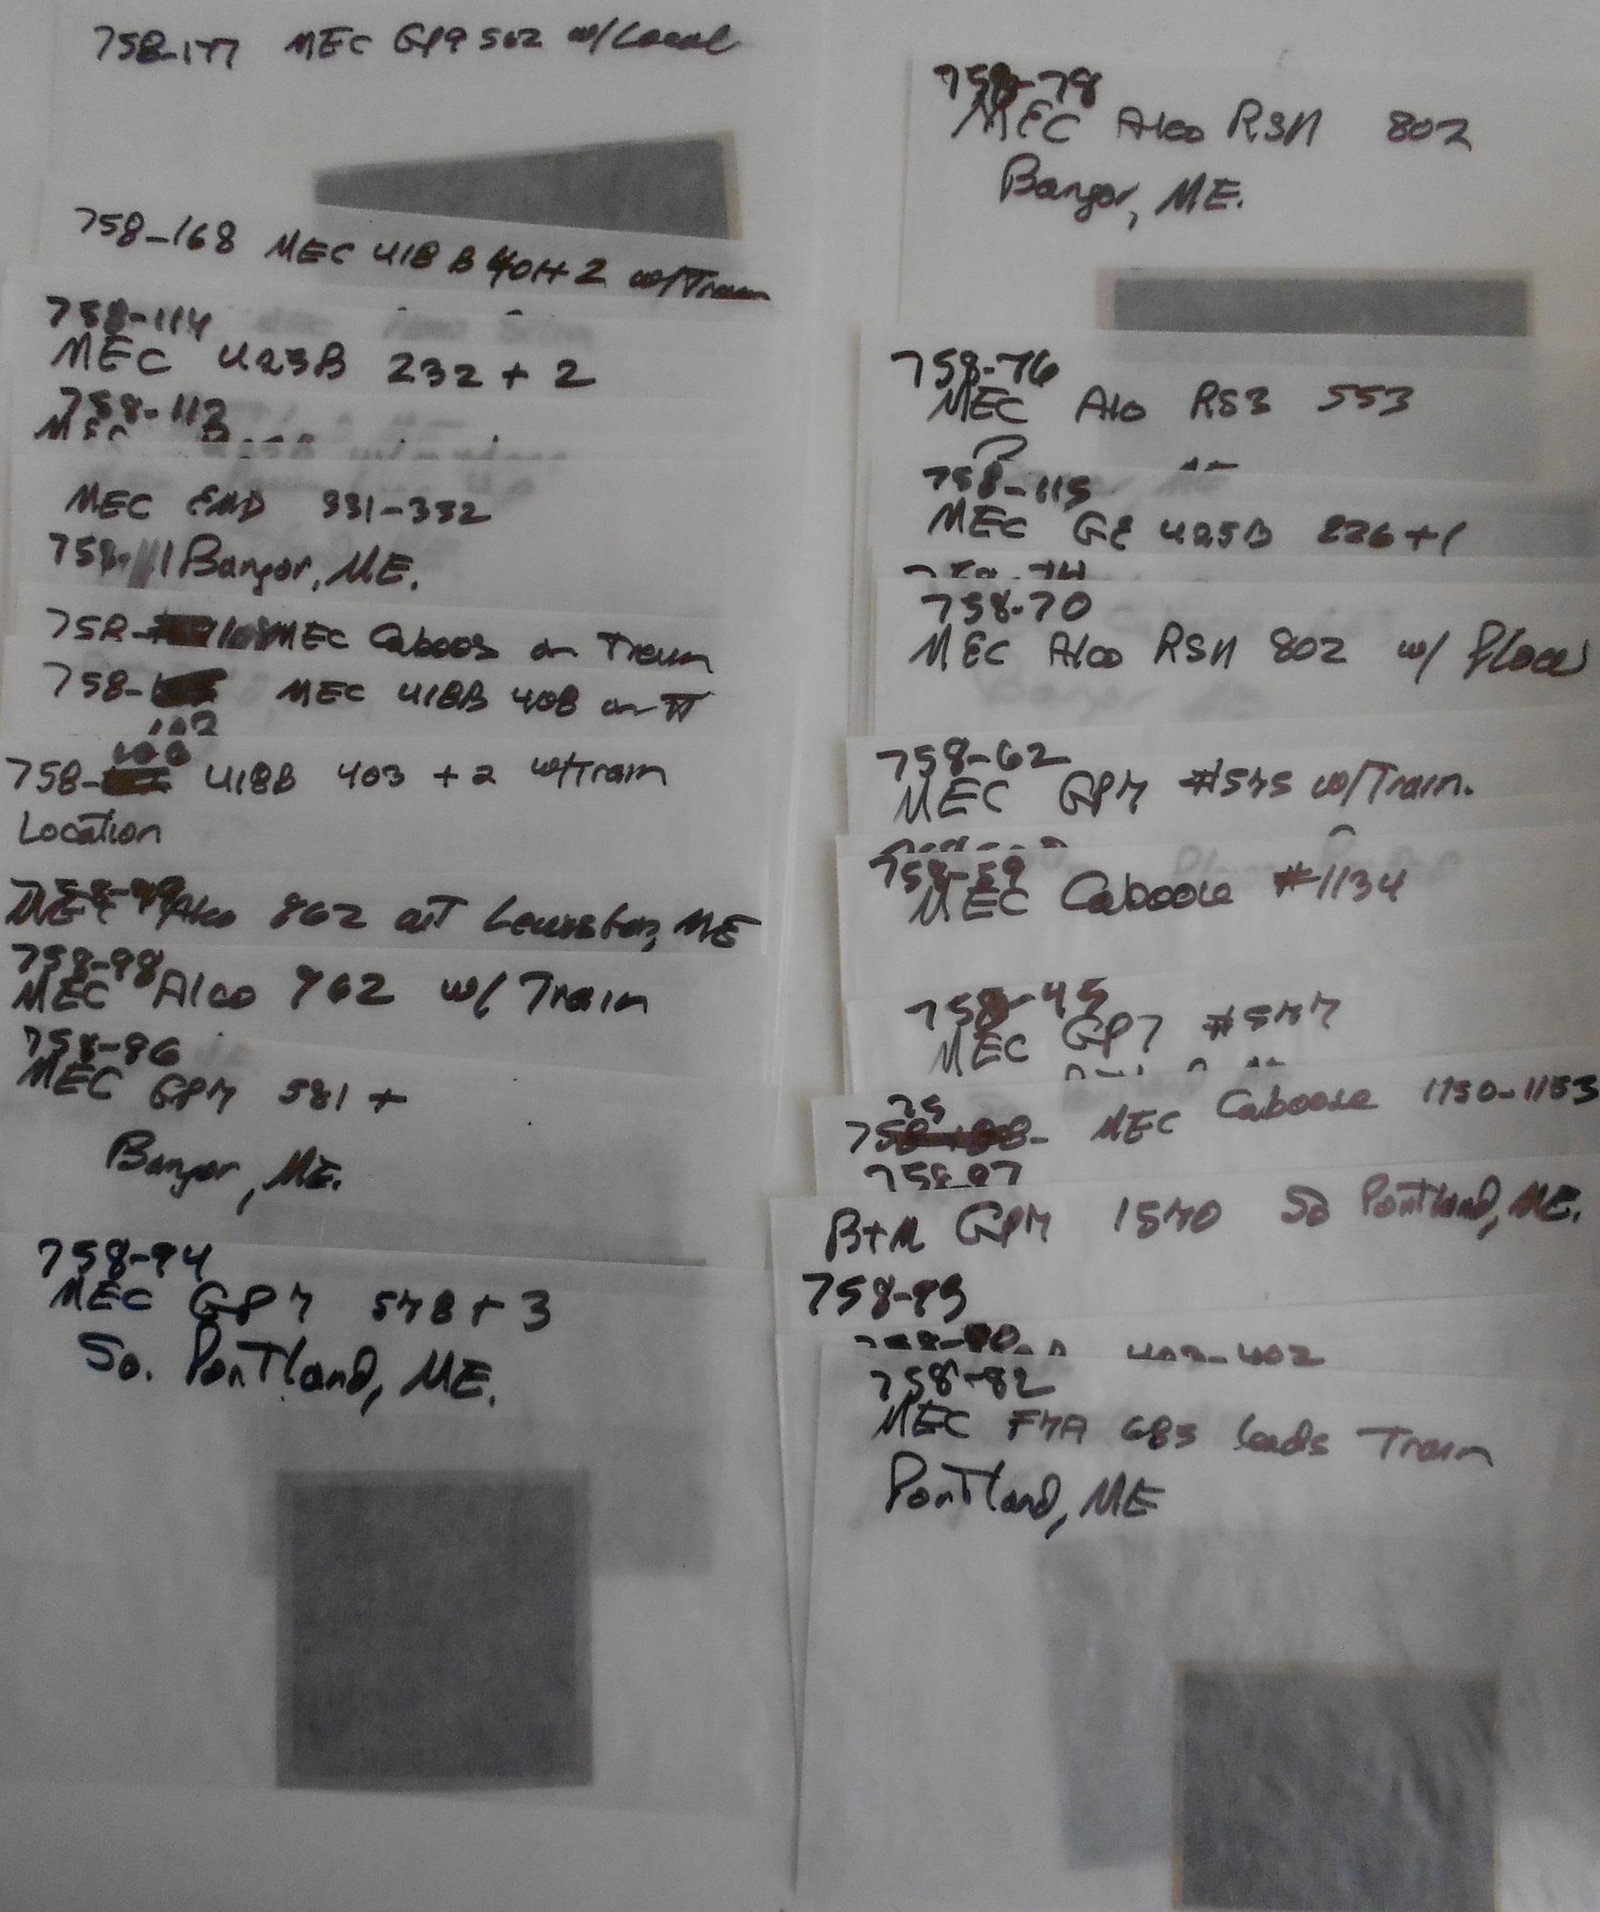 758-177 MEC GP9 562 w/Local
758-168 MEC U18B 401+2 w/Train
758-114
MEC U23B 232 + 2
758-112
MEC
MEC EMD 331-332
758-111 Bangor, ME.
758- MEC Caboos on Train
758- MEC U18B 408 on
102
100
758- U18B 403 + 2 w/Train
Location
758-99
MEC Alco 862 at Lewiston, ME
758-98
MEC Alco 962 w/ Train
758-96
MEC GP7 581 +
Bangor, ME.
758-94
MEC GP7 578 + 3
So. Portland, ME.
758-78
MEC Alco RS11 802
Bangor, ME.
758-76
MEC Alco RS3 553
758-115
MEC GE U25B 226+1
758-74
758-70
MEC Alco RS11 802 w/ Plow
758-62
MEC GP7 #575 w/Train.
758-59
MEC Caboose #1134
758-45
MEC GP7 #577
25
758- MEC Caboose 1150-1153
758-97
B+M GP7 1570 So Portland, ME.
758-93
403-402
758-82
MEC F7A 683 leads Train
Portland, ME